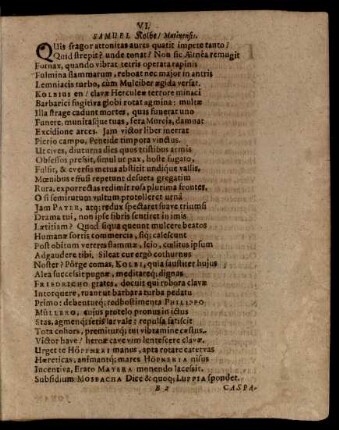 VI.
SAMUEL Kolbe/
QUis fragor attonitas aures quatit impete tanto?
Quid strepit? unde tonat? Non sic Aetnea remugit
Fornax, quando vibrat tetris operata rapinis
Fulmina flammarum, reboat nec major in antris
Lemniacis turbo, cùm Mulciber aegida versat.
KOLBIUS en! clavae Herculeae terrore minaci
Barbarici fugitiva globi rotat agmina: multae
Illa strage cadunt mortes, quis funerat uno
Funere. munitasque tuas, sera damnat
Excidione artes. Jam victor liber inerrat
Pierio campo, Peneidae timpora vindus.
Ut cives, diuturna dies quos tristibus armis
Obsessos presit, simul ut pax, hoste fugato,
Fulsit, & eversis metus abstitit undique vallis,
Moenibus effusi repetunt desueta gregatim
Rura, exporrectas redimit rosa plurima frontes.
O si semirutum vultum protolleret urna
Jam PATER, atque redux spectaret suave triumfi
Drama tui, non ipse fibris sentiret in imis
Laetitiam? Quod siqua queunt mulcere beatos
Humanae sortis commercia, sique calescunt
Post obitum veteres flammae, scio, cultus ipsum
Adgaudere tibi. Sileat cur ergò cothurnus
Noster? Porge comas, KOLBI, quia faustiter hujus
Alea successit pugnae, meditareque dignas
FRIEDRICHO grates, docuit qui robora clavae
Intorquere, ruunt ut barbara turba pedatu
Primo: debentque redhostimenta PHILIPPO
MÜLLERO, cujus protelo pronus in ictus
Stas, agmenque sietis larvale: repulsa fatiscit
Tota cohors, premiturque ini vibramine caestus.
Victor have! heroae cave vim lentescere clavae.
Urget te HÖPFNERI manus, apta rotare catervas
Haereticas, animantque mares HÖPNERIA nisus
Incentiva, Erato MAYERA movendo lacessit.
Subsidium MOSBACHA Dice & quoque LUPPIA spondet.
B 2 CASPA-